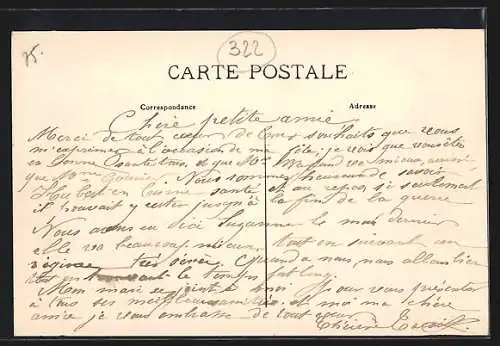 25.
322
CARTE POSTALE
Correspondance
Adresse
Chère petite amie
Merci de tout cœur de tous souhaits que vous
m'exprimez à l'occasion de ma fête, je vois que vous êtes
en bonne santé tous, et que Mr va mieux, ainsi
que Mme Nous sommes heureux de savoir
Hubert en bonne santé et au repos, si seulement
il pouvait y rester jusqu'à la fin de la guerre
Nous avons eu ici Suzanne le mois dernier
elle va beaucoup mieux, tout en suivant un
régime très sévère. Quand à nous, nous allons bien
tout en trouvant le temps fort long.
Mon mari se joint à moi pour vous présenter
à tous ses meilleures amitiés. et moi ma chère
amie je vous embrasse de tout cœur